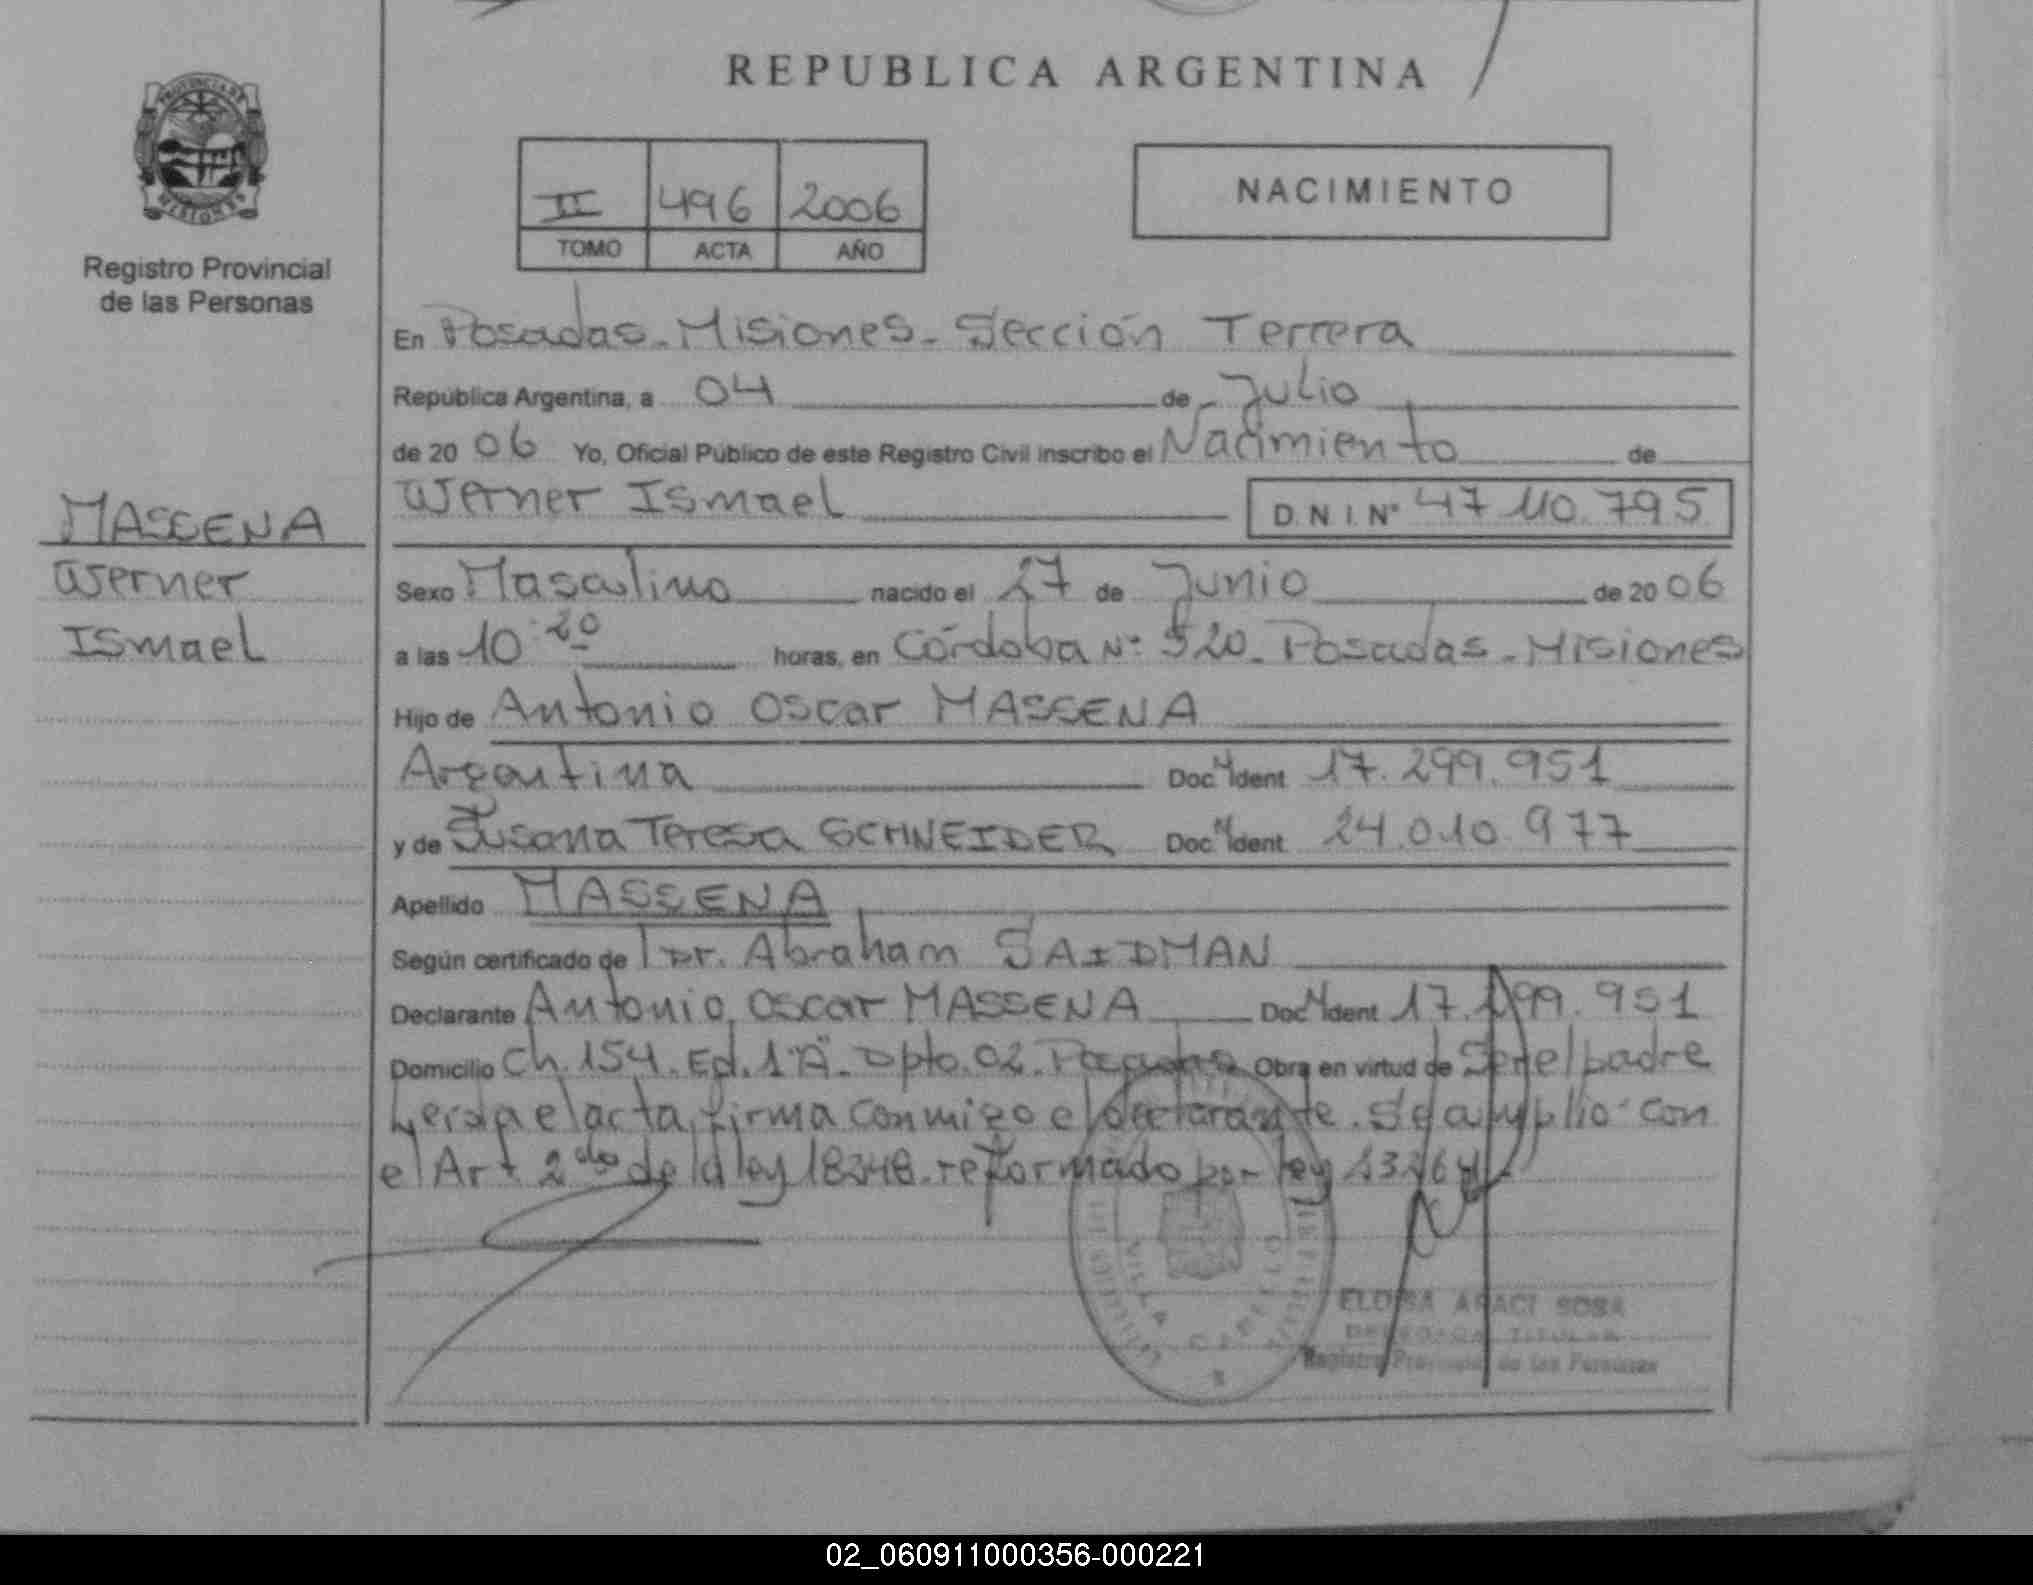 REPUBLICA ARGENTINA
PROVINCIA DE
MISIONES
Registro Provincial
de las Personas
II 496 2006
TOMO ACTA AÑO
NACIMIENTO
En Posadas - Misiones - Sección Tercera
República Argentina, a 04 de Julio
de 2006 Yo, Oficial Público de este Registro Civil inscribo el Nacimiento de
Werner Ismael D.N.I. Nº 47 110.795
MASSENA
Werner
Ismael
Sexo Masculino nacido el 27 de Junio de 2006
a las 10 20 horas, en Córdoba Nº 520 - Posadas - Misiones
Hijo de Antonio Oscar MASSENA
Argentina Doc N Ident 17.299.951
y de Susana Teresa SCHNEIDER Doc N Ident 24.010.977
Apellido MASSENA
Según certificado de Dr. Abraham SAIDMAN
Declarante Antonio Oscar MASSENA Doc N Ident 17.299.951
Domicilio Ch. 154. Ed. 1 "A" - Dpto. 02 - Posadas Obra en virtud de Ser el padre
Leida el acta, firma conmigo el declarante. Se amplio con
el Art 2do de la ley 18248 - reformado por ley
VILLA CABELLO
ELOISA ARACI SOSA
DELEGADA TITULAR
Registro Provincial de las Personas
02_060911000356-000221